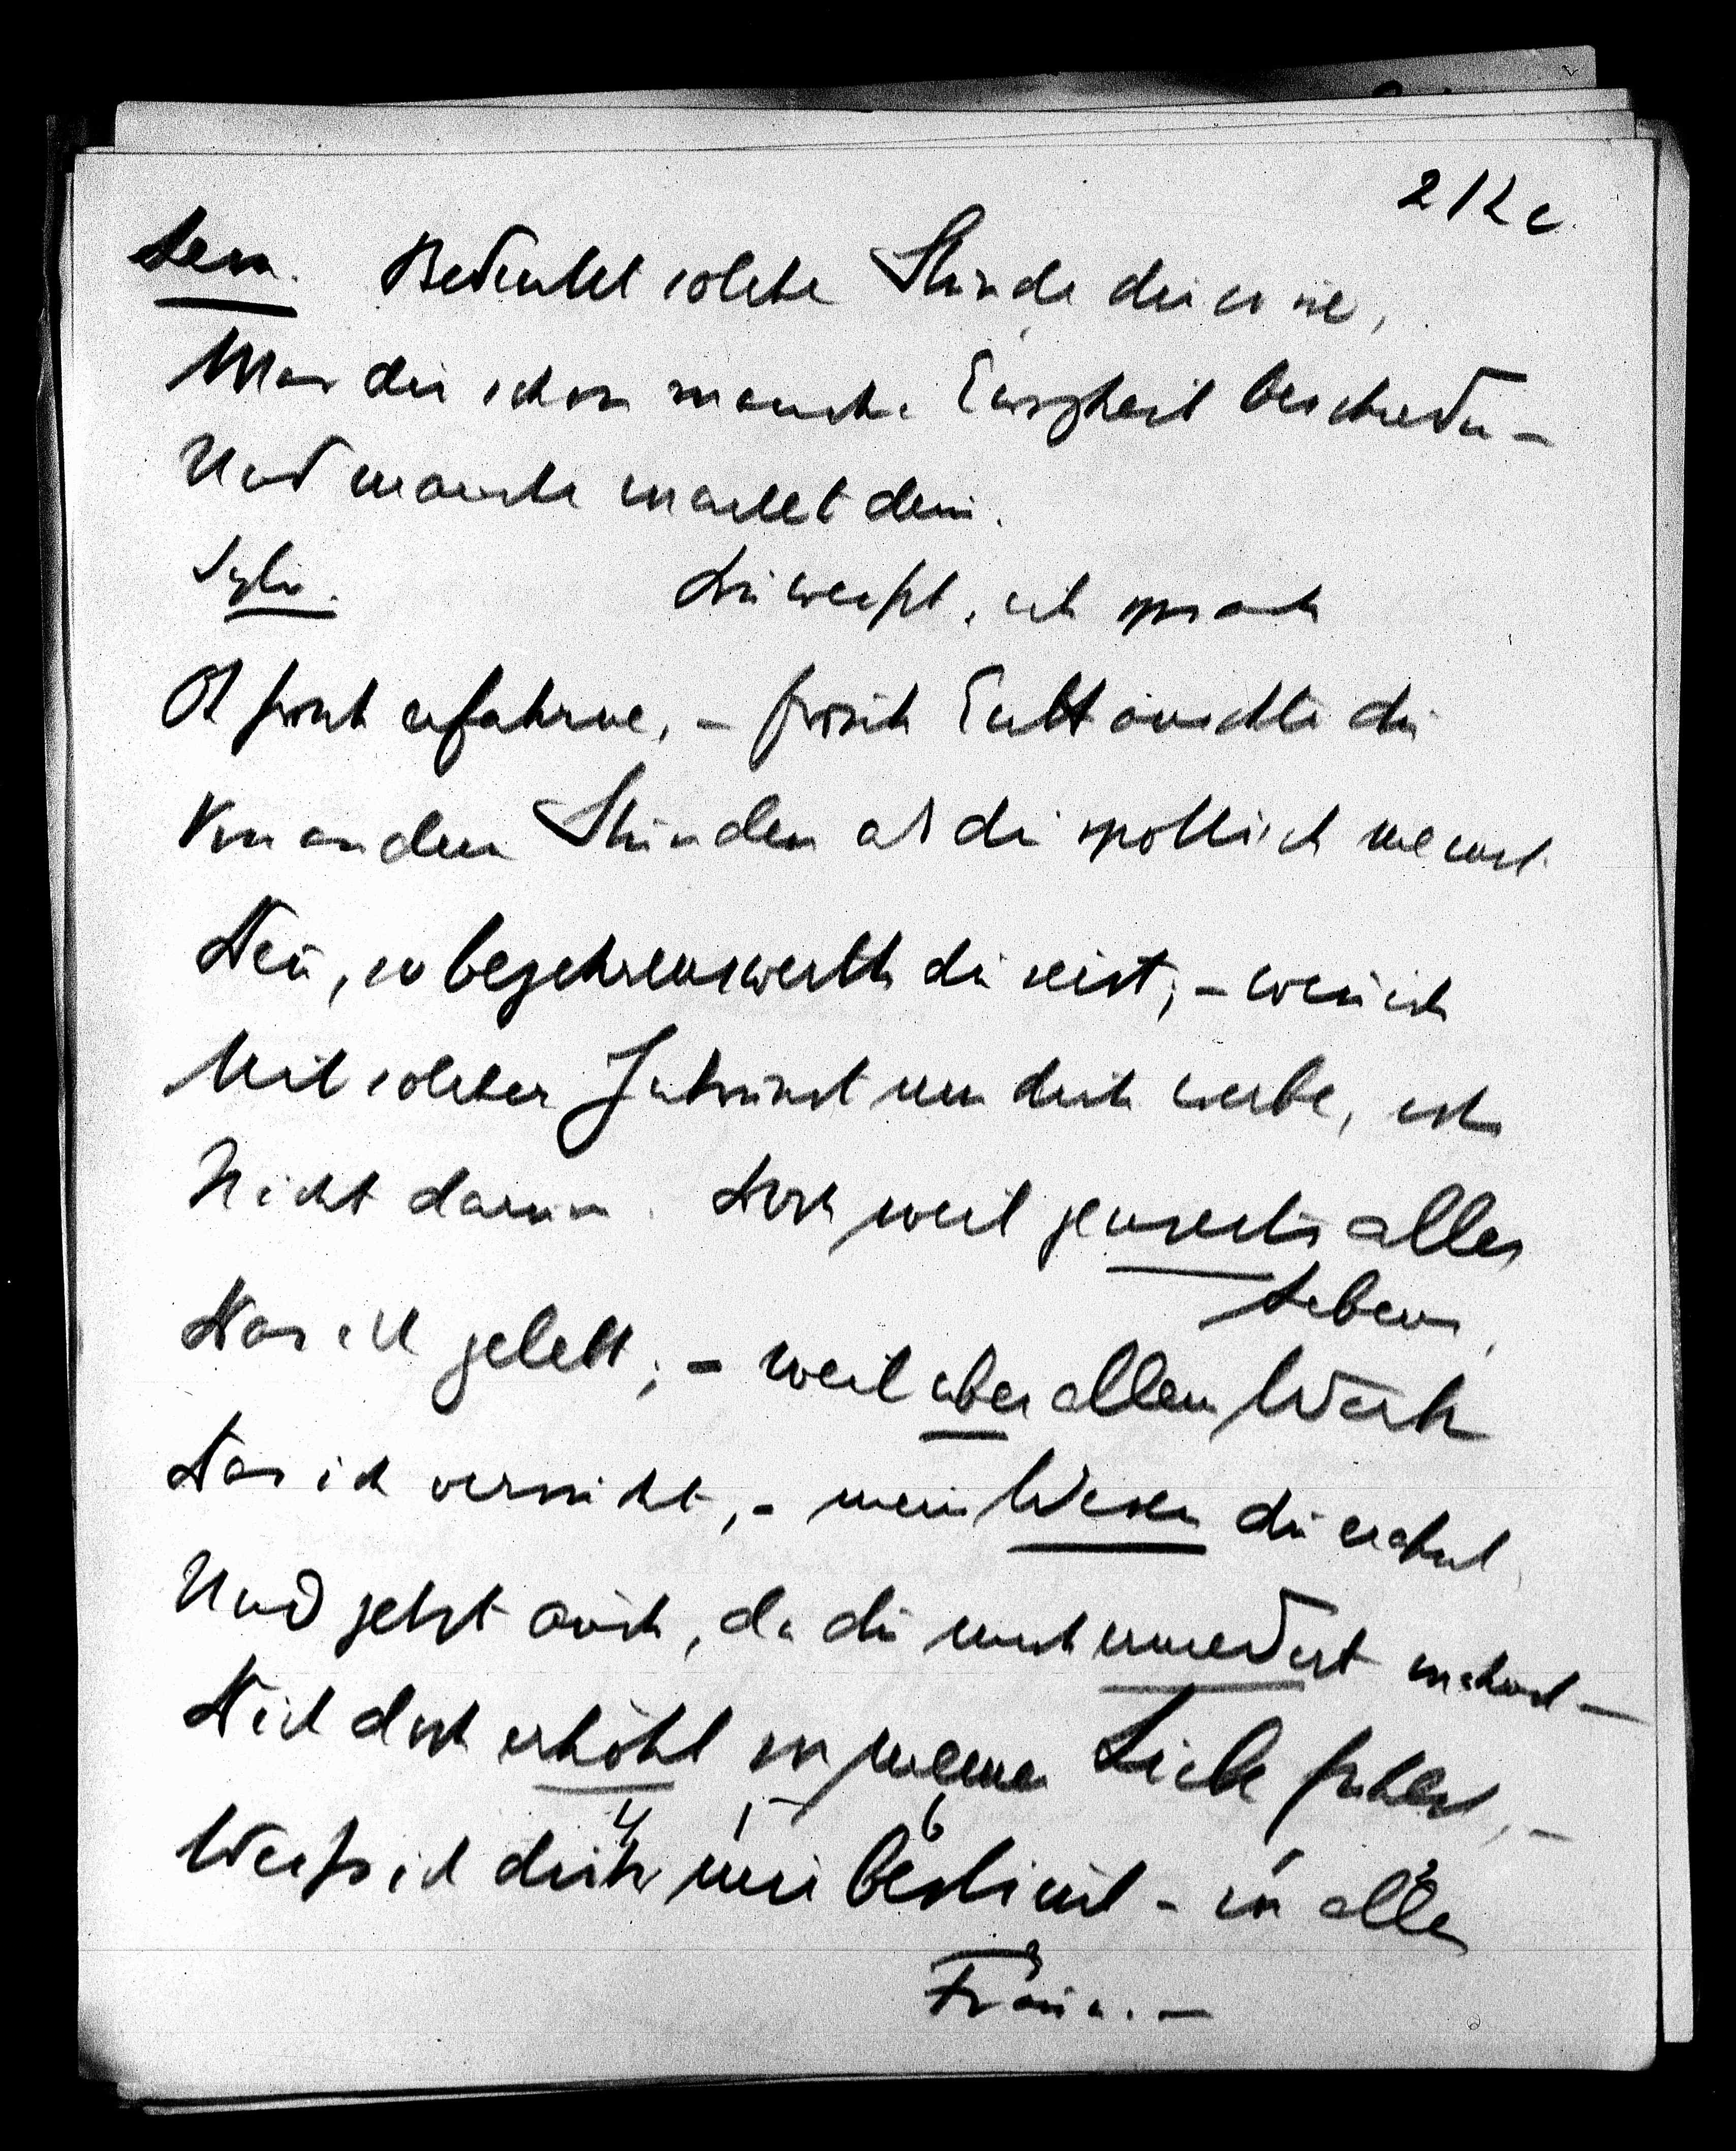 212c.
Sem. Bedeutet solche Stunde dir so viel,
War dir schon manche Ewigkeit beschieden –
Und manche wartet dein.
Sylv. Du weißt, ich sprach
Oft frisch erfahrne, – frisch Enttäuschte die
Von andern Stunden als du spöttisch meinst.
Nein, so begehrenswerth du seist, – wenn ich
Mit solcher Inbrunst um dich werbe, ists
Nicht darum. Doch weil jenseits alles
Lebens,
Das ich gelebt; – weil über allem Werk
Das ich versucht, – mein Wesen du erahnst,
Und jetzt auch, da du mich erniedert wähnst –
Dich doch erhöht in meiner Liebe fühlst, –
4 5 6
Weiß ich dich mir bestimmt – in allen
1 2
Fraun. –
3